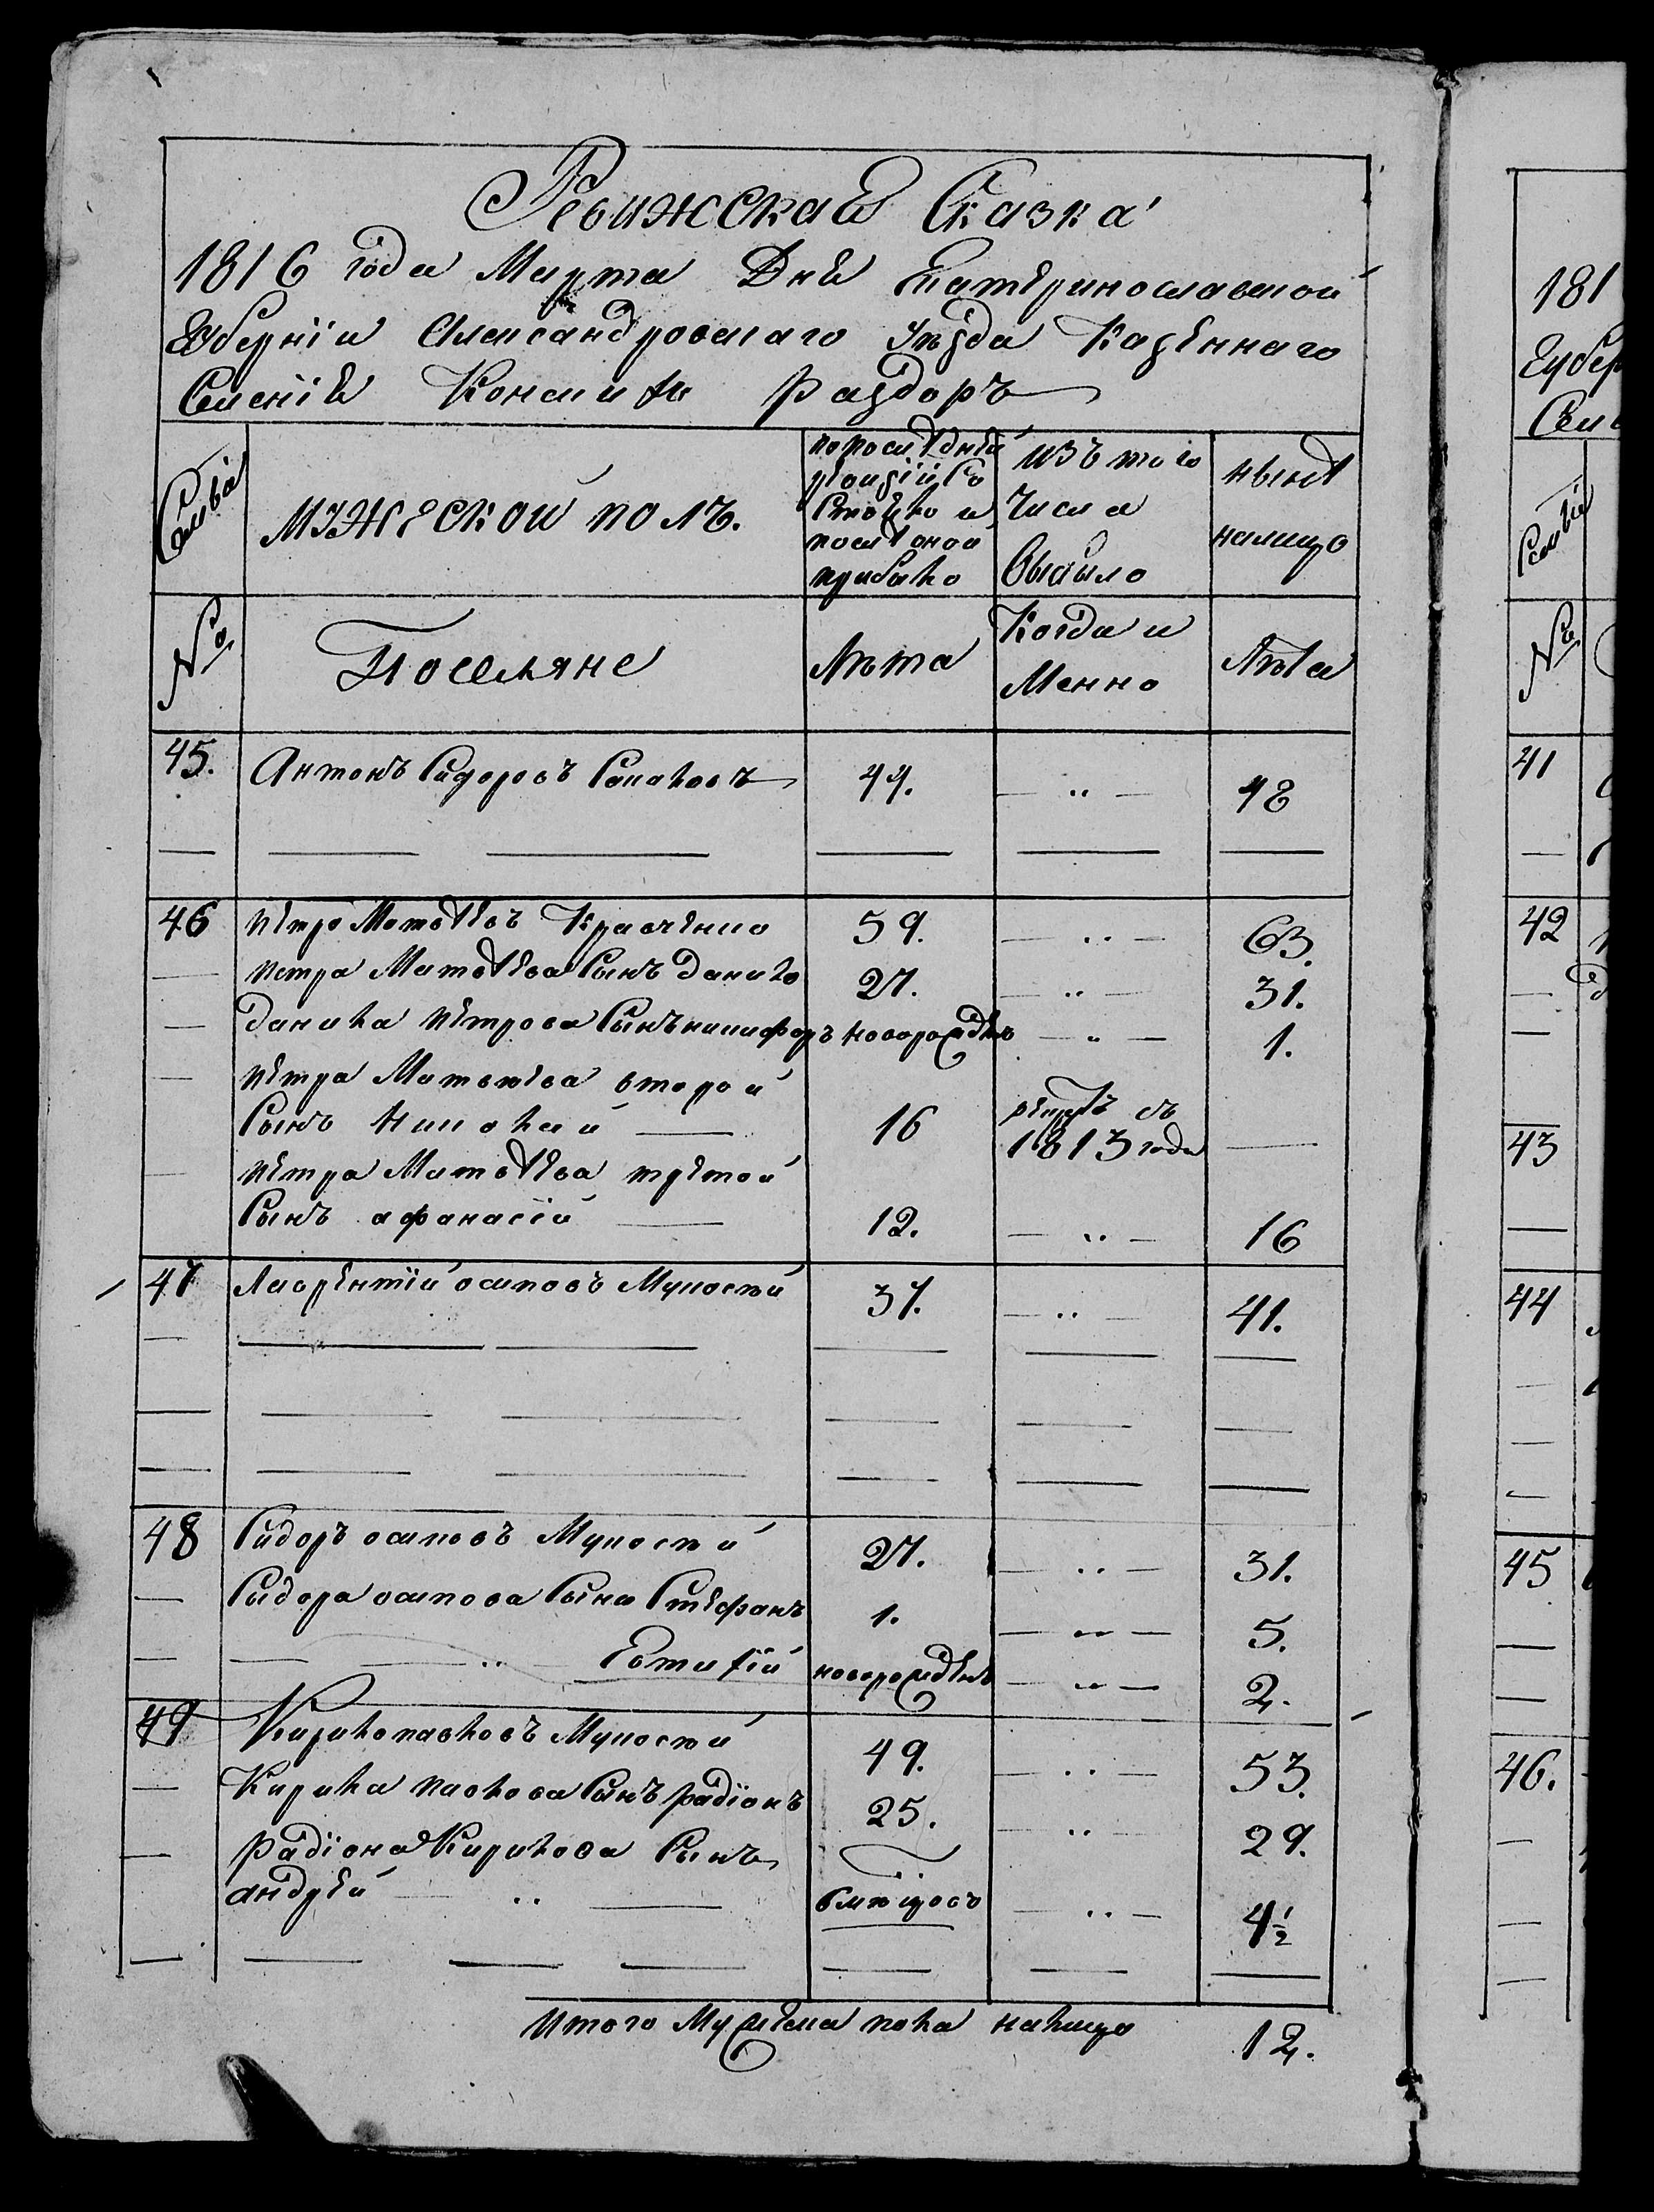 Ревижская Сказка
1816 года Марта Дня Екатеринославской
Губернїи Александровскаго уѣзда Казенного
Селенїя Конских Раздоръ
Семьи
мужеской полъ.
по последней
ревизїи Со
стояло и
после оной
прибыло
изъ того
числа
Выбыло
ныне
налицо
№
Поселяне
Лѣта
Когда и
Менно
Лѣта
45. Антонъ Сидоровъ 44. — " — 48
46 Петро Матвеевъ Кравченко 59. — " — 63.
Петра Матвеева Сынъ Данило 27. — " — 31.
Данила Петрова Сынъ Никифоръ новорожденъ — " — 1.
Петра Матвеева второй
Сынъ Николай — 16 рекрутъ съ 1813 года —
Петра Матвеева третой
Сынъ афанасїй — 12. — " — 16
47 Лаврентїй осиповъ Мукостїй 37. — " — 41.
48 Сидоръ осиповъ Мукостїй 27. — " — 31.
Сидора осипова Сына Стефанъ 1. — " — 5.
— " — Евтихїй новорожденъ — " — 2.
49 Кирило павловъ Мукостїй 49. — " — 53.
Кирила павлова Сынъ радїонъ 25. — " — 29.
Радїона Кирилова Сынъ
андрей — " — — " — 4½
Итого Мужеска пола налицо 12.
181
Губер
Сел
Семьи
№
41
42
43
44
45
46.